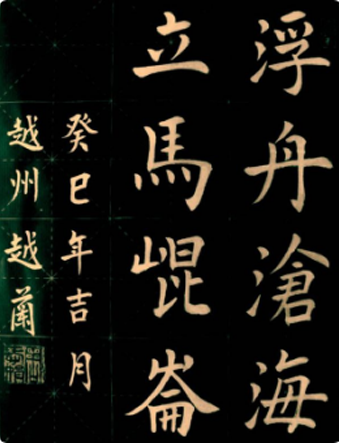 浮舟滄海
立馬崐崙
癸巳年吉月
越州越蘭